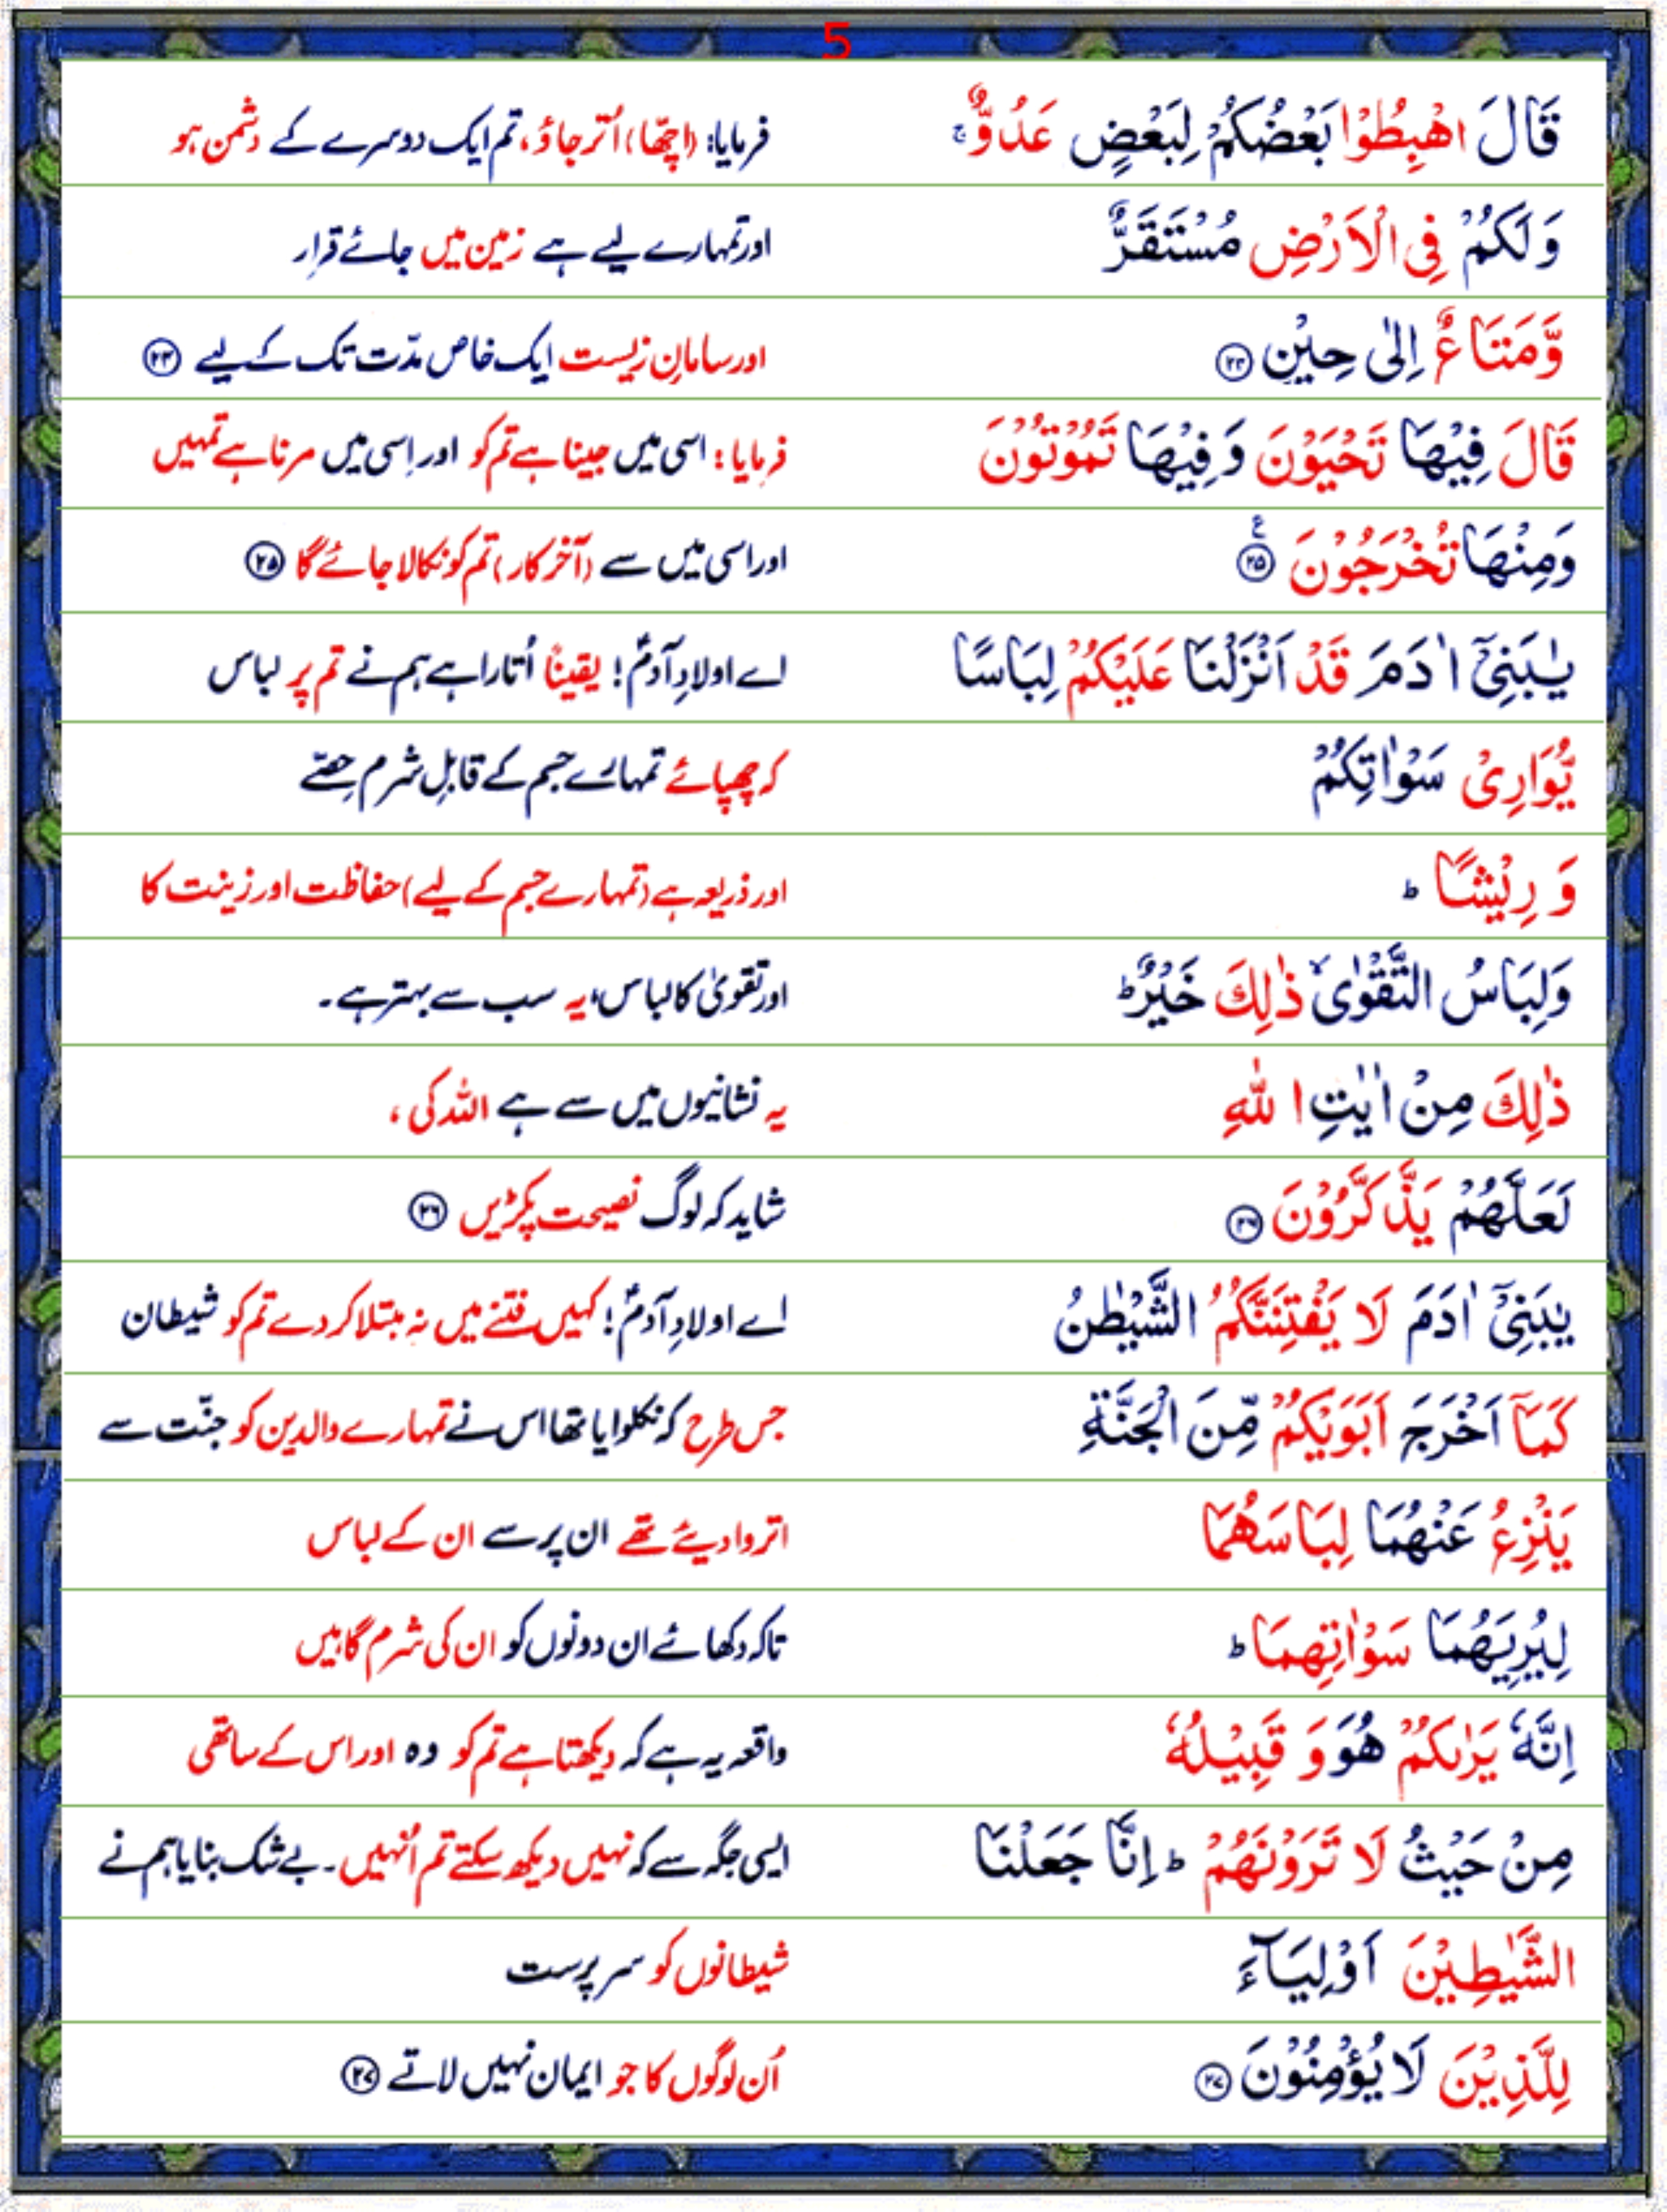 5
قَالَ اهْبِطُوْا بَعْضُكُمْ لِبَعْضٍ عَدُوٌّ ۚ فرمایا: (اچھّا) اُتر جاؤ، تم ایک دوسرے کے دشمن ہو
وَلَكُمْ فِی الْاَرْضِ مُسْتَقَرٌّ اور تمہارے لیے ہے زمین میں جائے قرار
وَّمَتَاعٌ اِلٰی حِیْنٍ ۲۴ اور سامانِ زیست ایک خاص مدّت تک کے لیے ۲۴
قَالَ فِیْهَا تَحْیَوْنَ وَ فِیْهَا تَمُوْتُوْنَ فرمایا: اسی میں جینا ہے تم کو اور اِسی میں مرنا ہے تمہیں
وَمِنْهَا تُخْرَجُوْنَ ۲۵ ع اور اسی میں سے (آخر کار) تم کو نکالا جائے گا ۲۵
یٰبَنِیْۤ اٰدَمَ قَدْ اَنْزَلْنَا عَلَیْكُمْ لِبَاسًا اے اولادِ آدمؑ! یقیناً اُتارا ہے ہم نے تم پر لباس
یُّوَارِیْ سَوْاٰتِكُمْ کہ چھپائے تمہارے جسم کے قابلِ شرم حصّے
وَ رِیْشًا ؕ اور ذریعہ ہے (تمہارے جسم کے لیے) حفاظت اور زینت کا
وَلِبَاسُ التَّقْوٰی ۙ ذٰلِكَ خَیْرٌ ؕ اور تقویٰ کا لباس، یہ سب سے بہتر ہے۔
ذٰلِكَ مِنْ اٰیٰتِ اللّٰهِ یہ نشانیوں میں سے ہے اللہ کی ،
لَعَلَّهُمْ یَذَّكَّرُوْنَ ۲۶ شاید کہ لوگ نصیحت پکڑیں ۲۶
یٰبَنِیْۤ اٰدَمَ لَا یَفْتِنَنَّكُمُ الشَّیْطٰنُ اے اولادِ آدمؑ! کہیں فتنے میں نہ مبتلا کر دے تم کو شیطان
كَمَاۤ اَخْرَجَ اَبَوَیْكُمْ مِّنَ الْجَنَّةِ جس طرح کہ نکلوایا تھا اس نے تمہارے والدین کو جنّت سے
یَنْزِعُ عَنْهُمَا لِبَاسَهُمَا اتروا دیئے تھے ان پر سے ان کے لباس
لِیُرِیَهُمَا سَوْاٰتِهِمَا ؕ تاکہ دکھائے ان دونوں کو ان کی شرم گاہیں
اِنَّهٗ یَرٰىكُمْ هُوَ وَ قَبِیْلُهٗ واقعہ یہ ہے کہ دیکھتا ہے تم کو وہ اور اس کے ساتھی
مِنْ حَیْثُ لَا تَرَوْنَهُمْ ؕ اِنَّا جَعَلْنَا ایسی جگہ سے کہ نہیں دیکھ سکتے تم اُنہیں۔ بے شک بنایا ہم نے
الشَّیٰطِیْنَ اَوْلِیَآءَ شیطانوں کو سرپرست
لِلَّذِیْنَ لَا یُؤْمِنُوْنَ ۲۷ اُن لوگوں کا جو ایمان نہیں لاتے ۲۷